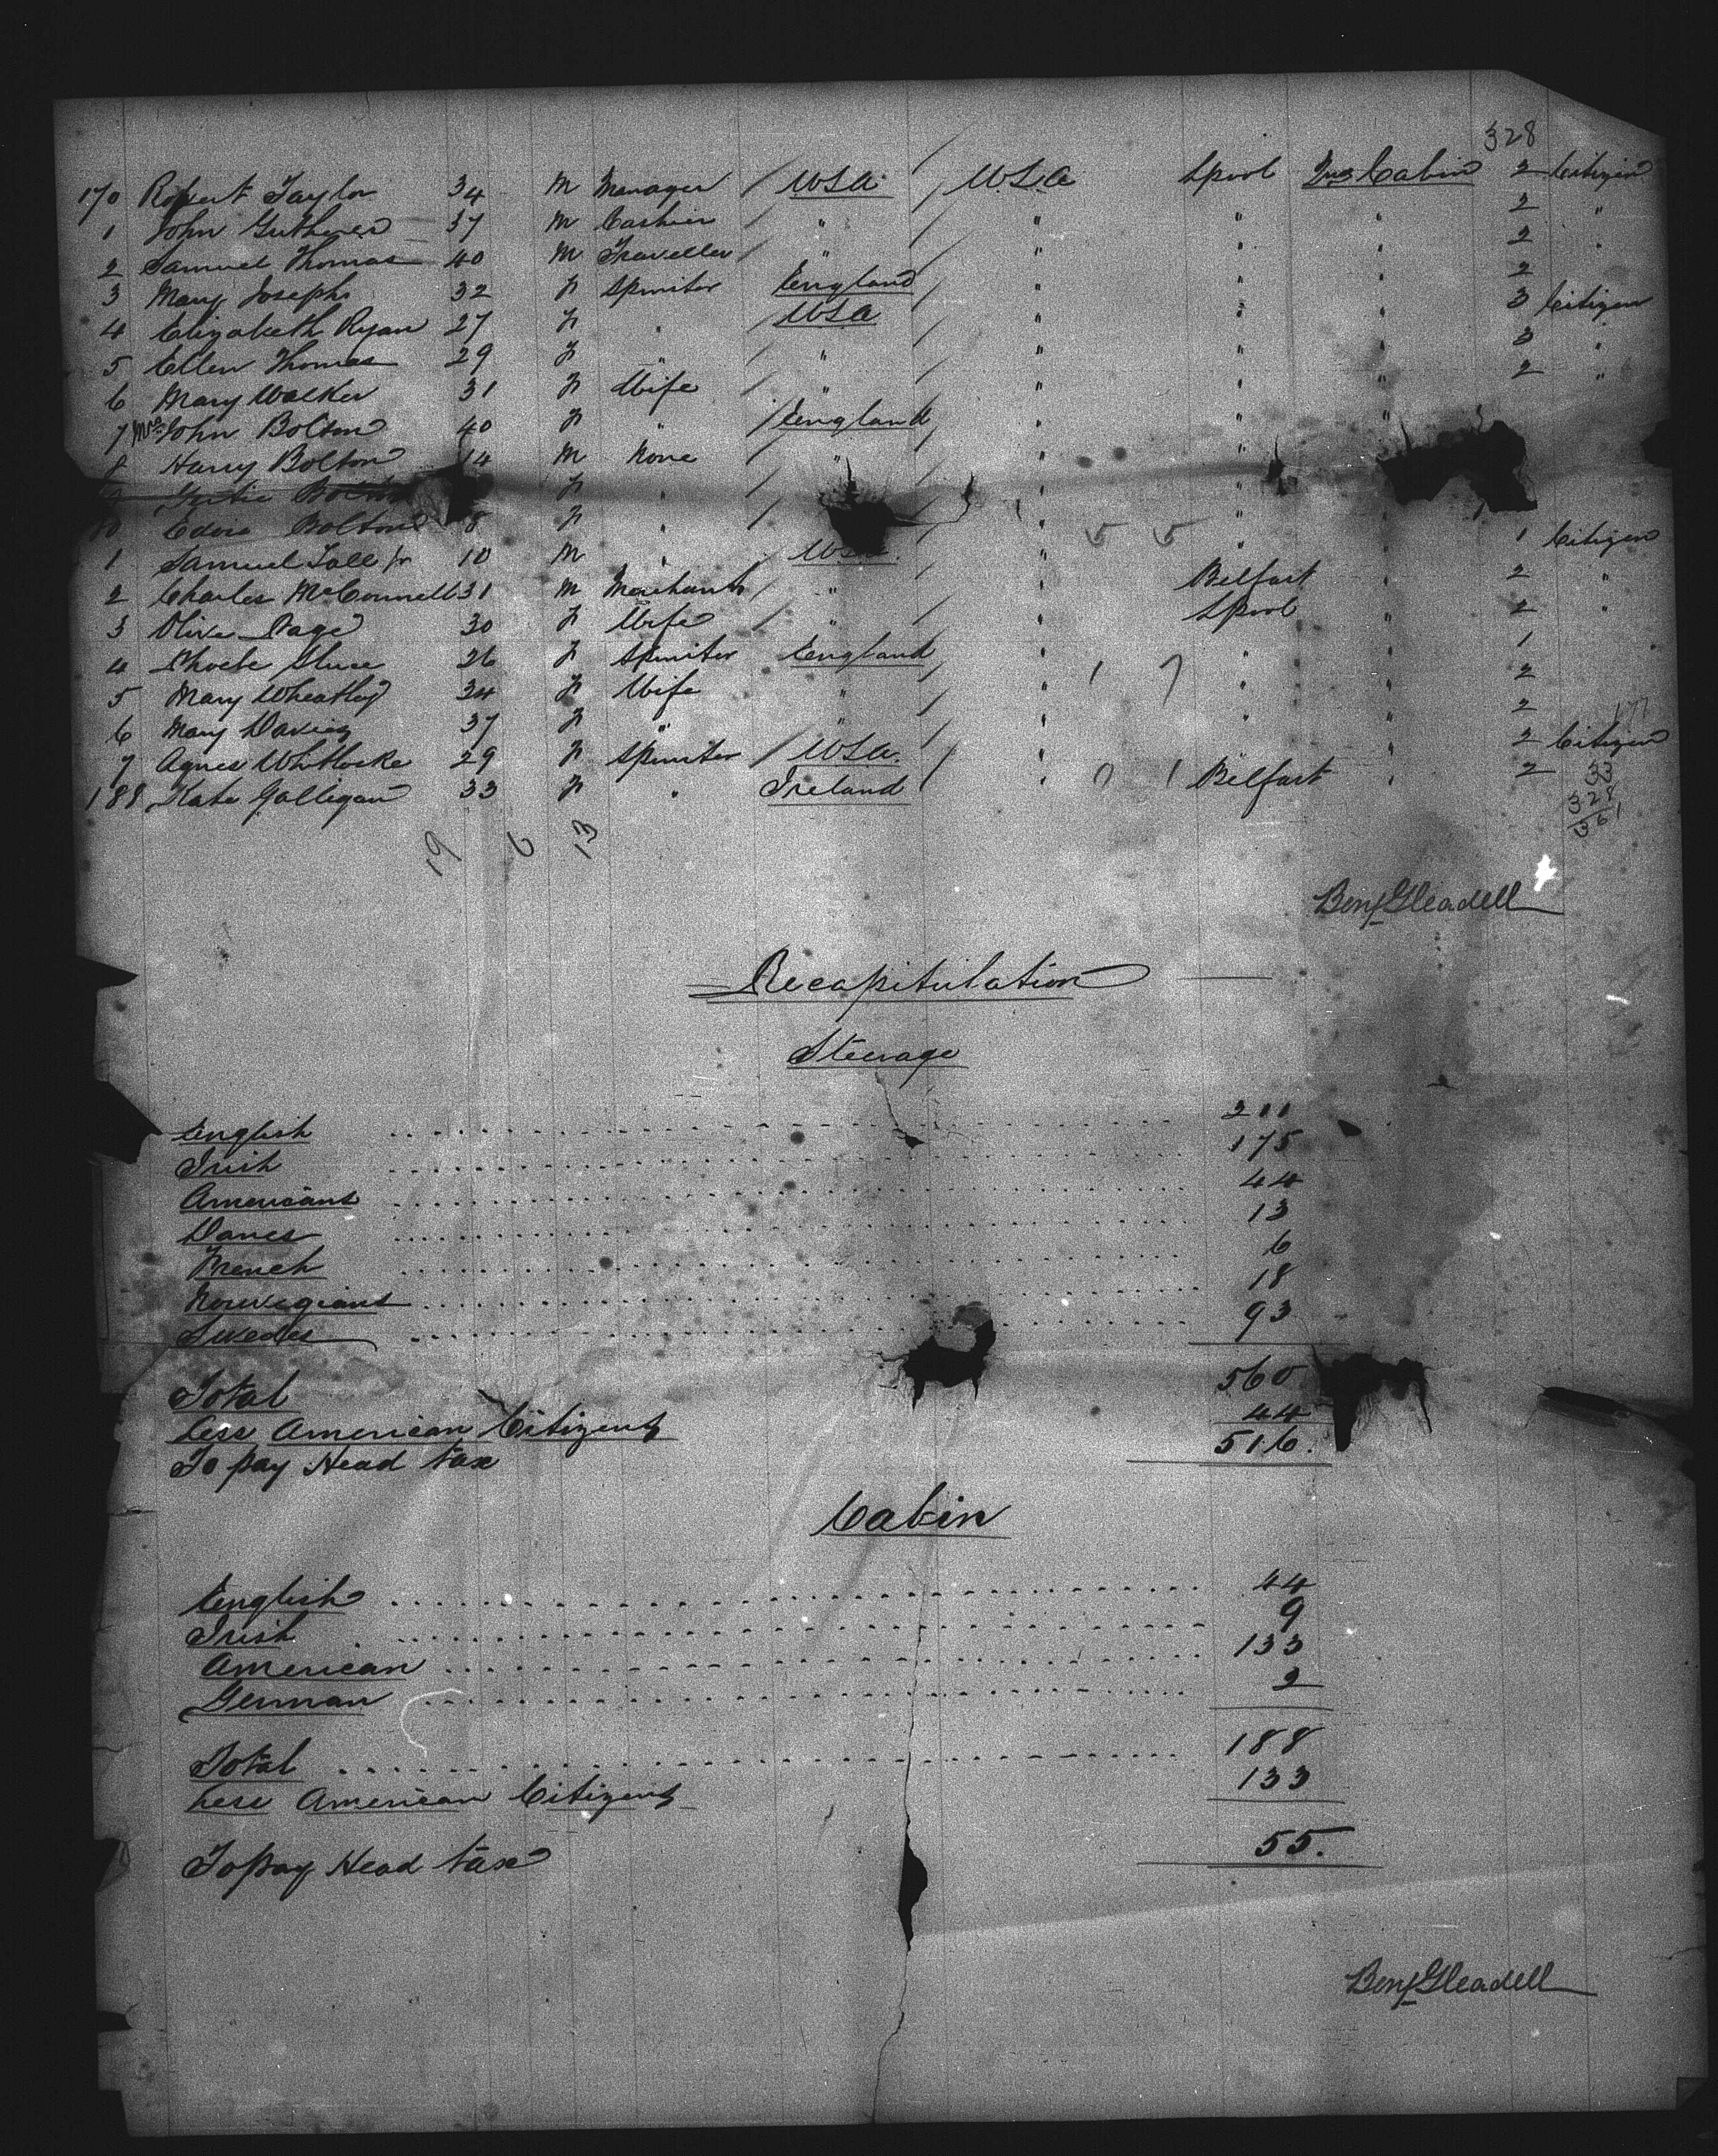 328
170 Robert Taylor 34 M Manager USA U.S.A Lpool 2nd Cabin 2 Citizen
1 John 37 M Cashier " " " " 2 "
2 Samuel Thomas 40 M Traveller " " " " 2 "
3 Mary Joseph 32 F Spinster England " " " 2
4 Elizabeth Ryan 27 F " USA " " " 3 Citizen
5 Ellen Thomas 29 F " " " " " 3 "
6 Mary Walker 31 F Wife " " " " 2 "
7 Mrs John Bolton 40 F " England " " "
8 Harry Bolton 14 M None " " "
Bolton F " " "
80 Bolton 8 F " " "
1 Samuel Jr 10 M " USA. " " 1 Citizen
2 Charles McConnell 31 M Merchant " " Belfast " 2 "
3 Olive Page 30 F Wife " " Lpool " 2 "
4 Phoebe 26 F Spinster England " " " 1
5 Mary Wheatley 34 F Wife " " " " 2
6 Mary Davies 37 F " " " " " 2
177
7 Agnes Whitlocke 29 F Spinster USA. " " 2 Citizen
188 Kate Galligan 33 F " Ireland " Belfast " 2
33
328
361
19 6 13
Benj Gleadell
Recapitulation
Steerage
English 211
Irish 175
Americans 44
Danes 13
French 6
Norwegians 18
Swedes 93
Total 560
Less American Citizens 44
To pay Head tax 516.
Cabin
English 44
Irish 9
American 133
German 2
Total 188
Less American Citizens 133
To pay Head tax 55.
Benj Gleadell